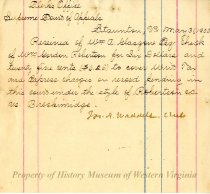 Clerk's Office
Supreme Court of Appeals
Staunton, Va May 30
Received of Wm A. Glasgow Esq Check
of Wm Gordon Robertson for Six Dollars and
twenty five cents ($6.25) to cover Writ Tax
and Express charges on record pending in
this court under the style of Robertson &c
vs Breckinridge.
Jos. A. Waddell Clerk
Property of History Museum of Western Virginia